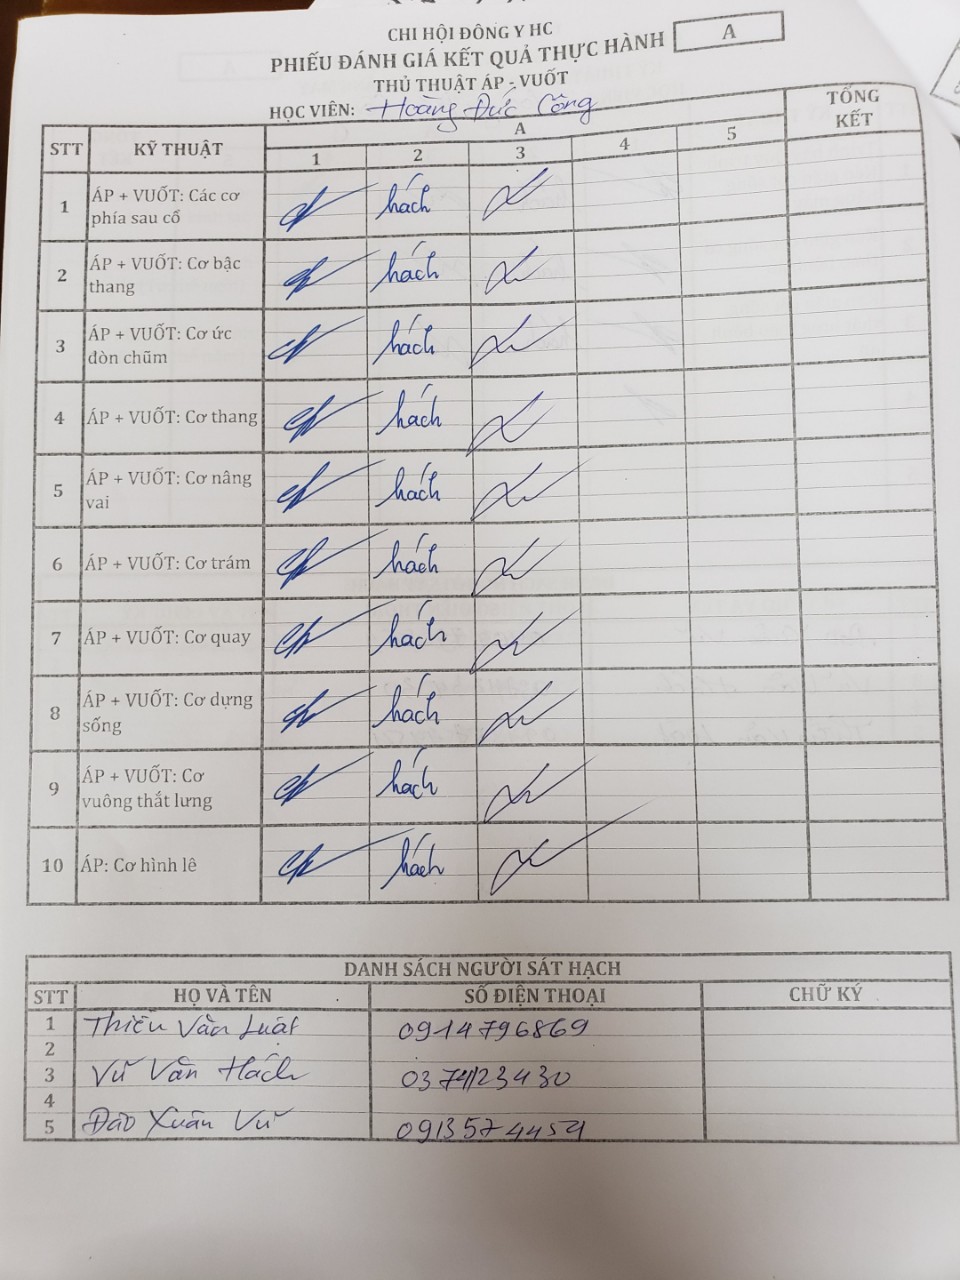 CHI HỘI ĐÔNG Y HC
PHIẾU ĐÁNH GIÁ KẾT QUẢ THỰC HÀNH
A
THỦ THUẬT ÁP - VUỐT
HỌC VIÊN: Hoàng Đức Công
STT KỸ THUẬT A TỔNG KẾT
1 2 3 4 5
1 ÁP + VUỐT: Các cơ phía sau cổ hách
2 ÁP + VUỐT: Cơ bậc thang hách
3 ÁP + VUỐT: Cơ ức đòn chũm hách
4 ÁP + VUỐT: Cơ thang hách
5 ÁP + VUỐT: Cơ nâng vai hách
6 ÁP + VUỐT: Cơ trám hách
7 ÁP + VUỐT: Cơ quay hách
8 ÁP + VUỐT: Cơ dựng sống hách
9 ÁP + VUỐT: Cơ vuông thắt lưng hách
10 ÁP: Cơ hình lê hách
DANH SÁCH NGƯỜI SÁT HẠCH
STT HỌ VÀ TÊN SỐ ĐIỆN THOẠI CHỮ KÝ
1 Thiều Văn Luật 0914796869
2
3 Vũ Văn Hách 0374123430
4
5 Đào Xuân Vũ 0913574454